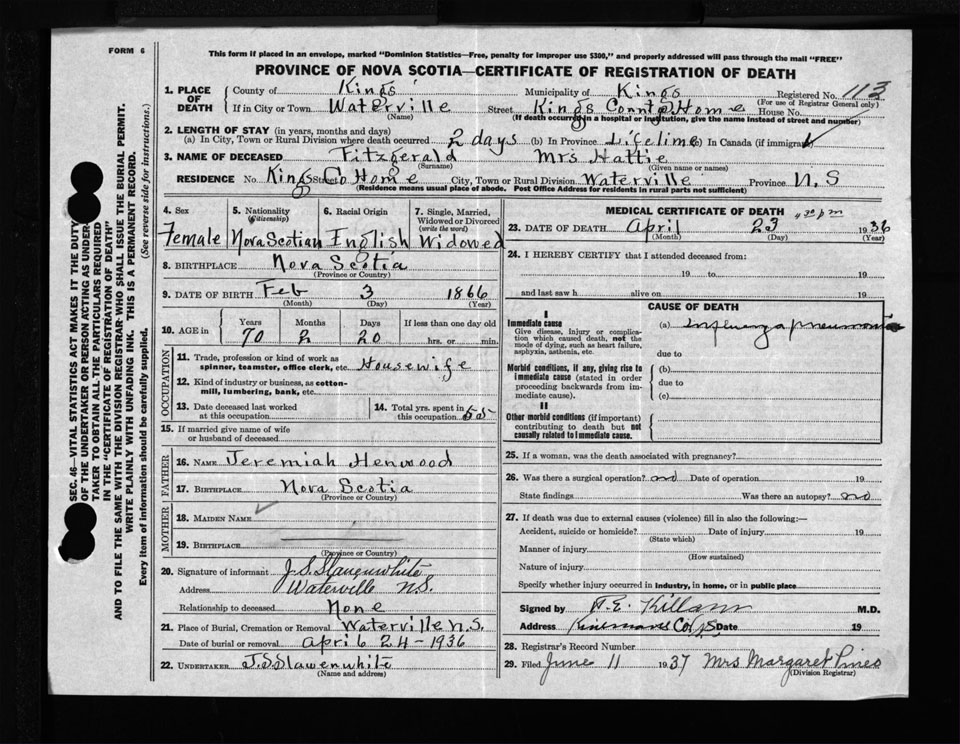 FORM 6
This form if placed in an envelope, marked "Dominion Statistics—Free, penalty for improper use $300," and properly addressed will pass through the mail "FREE"
PROVINCE OF NOVA SCOTIA—CERTIFICATE OF REGISTRATION OF DEATH
SEC. 46—VITAL STATISTICS ACT MAKES IT THE DUTY
OF THE UNDERTAKER OR PERSON ACTING AS UNDER-
TAKER TO OBTAIN ALL THE PARTICULARS REQUIRED
IN THE "CERTIFICATE OF REGISTRATION OF DEATH"
AND TO FILE THE SAME WITH THE DIVISION REGISTRAR WHO SHALL ISSUE THE BURIAL PERMIT.
WRITE PLAINLY WITH UNFADING INK. THIS IS A PERMANENT RECORD.
Every item of information should be carefully supplied. (See reverse side for instructions.)
1. PLACE OF DEATH County of Kings Municipality of Kings Registered No. 113
(For use of Registrar General only)
If in City or Town Waterville Street Kings County Home House No.
(Name) (If death occurred in a hospital or institution, give the name instead of street and number)
2. LENGTH OF STAY (in years, months and days)
(a) In City, Town or Rural Division where death occurred 2 days (b) In Province Lifetime (c) In Canada (if immigrant)
3. NAME OF DECEASED Fitzgerald Mrs Hattie
(Surname) (Given name or names)
RESIDENCE No. Kings Street Co Home City, Town or Rural Division Waterville Province N.S
(Residence means usual place of abode. Post Office Address for residents in rural parts not sufficient)
4. Sex 5. Nationality (Citizenship) 6. Racial Origin 7. Single, Married, Widowed or Divorced (write the word)
Female Nova Scotian English Widowed
8. BIRTHPLACE Nova Scotia
(Province or Country)
9. DATE OF BIRTH Feb 3 1866
(Month) (Day) (Year)
10. AGE in Years Months Days If less than one day old
70 2 20 hrs. or min.
OCCUPATION
11. Trade, profession or kind of work as spinner, teamster, office clerk, etc. Housewife
12. Kind of industry or business, as cotton-mill, lumbering, bank, etc.
13. Date deceased last worked at this occupation 14. Total yrs. spent in this occupation 55
15. If married give name of wife or husband of deceased
FATHER
16. NAME Jeremiah Henwood
17. BIRTHPLACE Nova Scotia
(Province or Country)
MOTHER
18. MAIDEN NAME
19. BIRTHPLACE
(Province or Country)
20. Signature of informant J.S. Slauenwhite
Address Waterville N.S.
Relationship to deceased None
21. Place of Burial, Cremation or Removal Waterville N.S.
Date of burial or removal April 24 - 1936
22. UNDERTAKER J.S. Slawenwhite
(Name and address)
MEDICAL CERTIFICATE OF DEATH
23. DATE OF DEATH April 23 1936
(Month) (Day) (Year)
24. I HEREBY CERTIFY that I attended deceased from:
19 to 19
and last saw h alive on 19
CAUSE OF DEATH
I
Immediate cause (a) Influenza pneumonia
Give disease, injury or complication which caused death, not the mode of dying, such as heart failure, asphyxia, asthenia, etc.
due to
Morbid conditions, if any, giving rise to immediate cause (stated in order proceeding backwards from immediate cause). (b)
due to
(c)
II
Other morbid conditions (if important) contributing to death but not causally related to immediate cause.
25. If a woman, was the death associated with pregnancy?
26. Was there a surgical operation? no Date of operation 19
State findings Was there an autopsy? no
27. If death was due to external causes (violence) fill in also the following:—
Accident, suicide or homicide? Date of injury 19
(State which)
Manner of injury
(How sustained)
Nature of injury
Specify whether injury occurred in industry, in home, or in public place
Signed by A.E. Killam M.D.
Address N.S. Date 19
28. Registrar's Record Number
29. Filed June 11 1937 Mrs Margaret Pines
(Division Registrar)